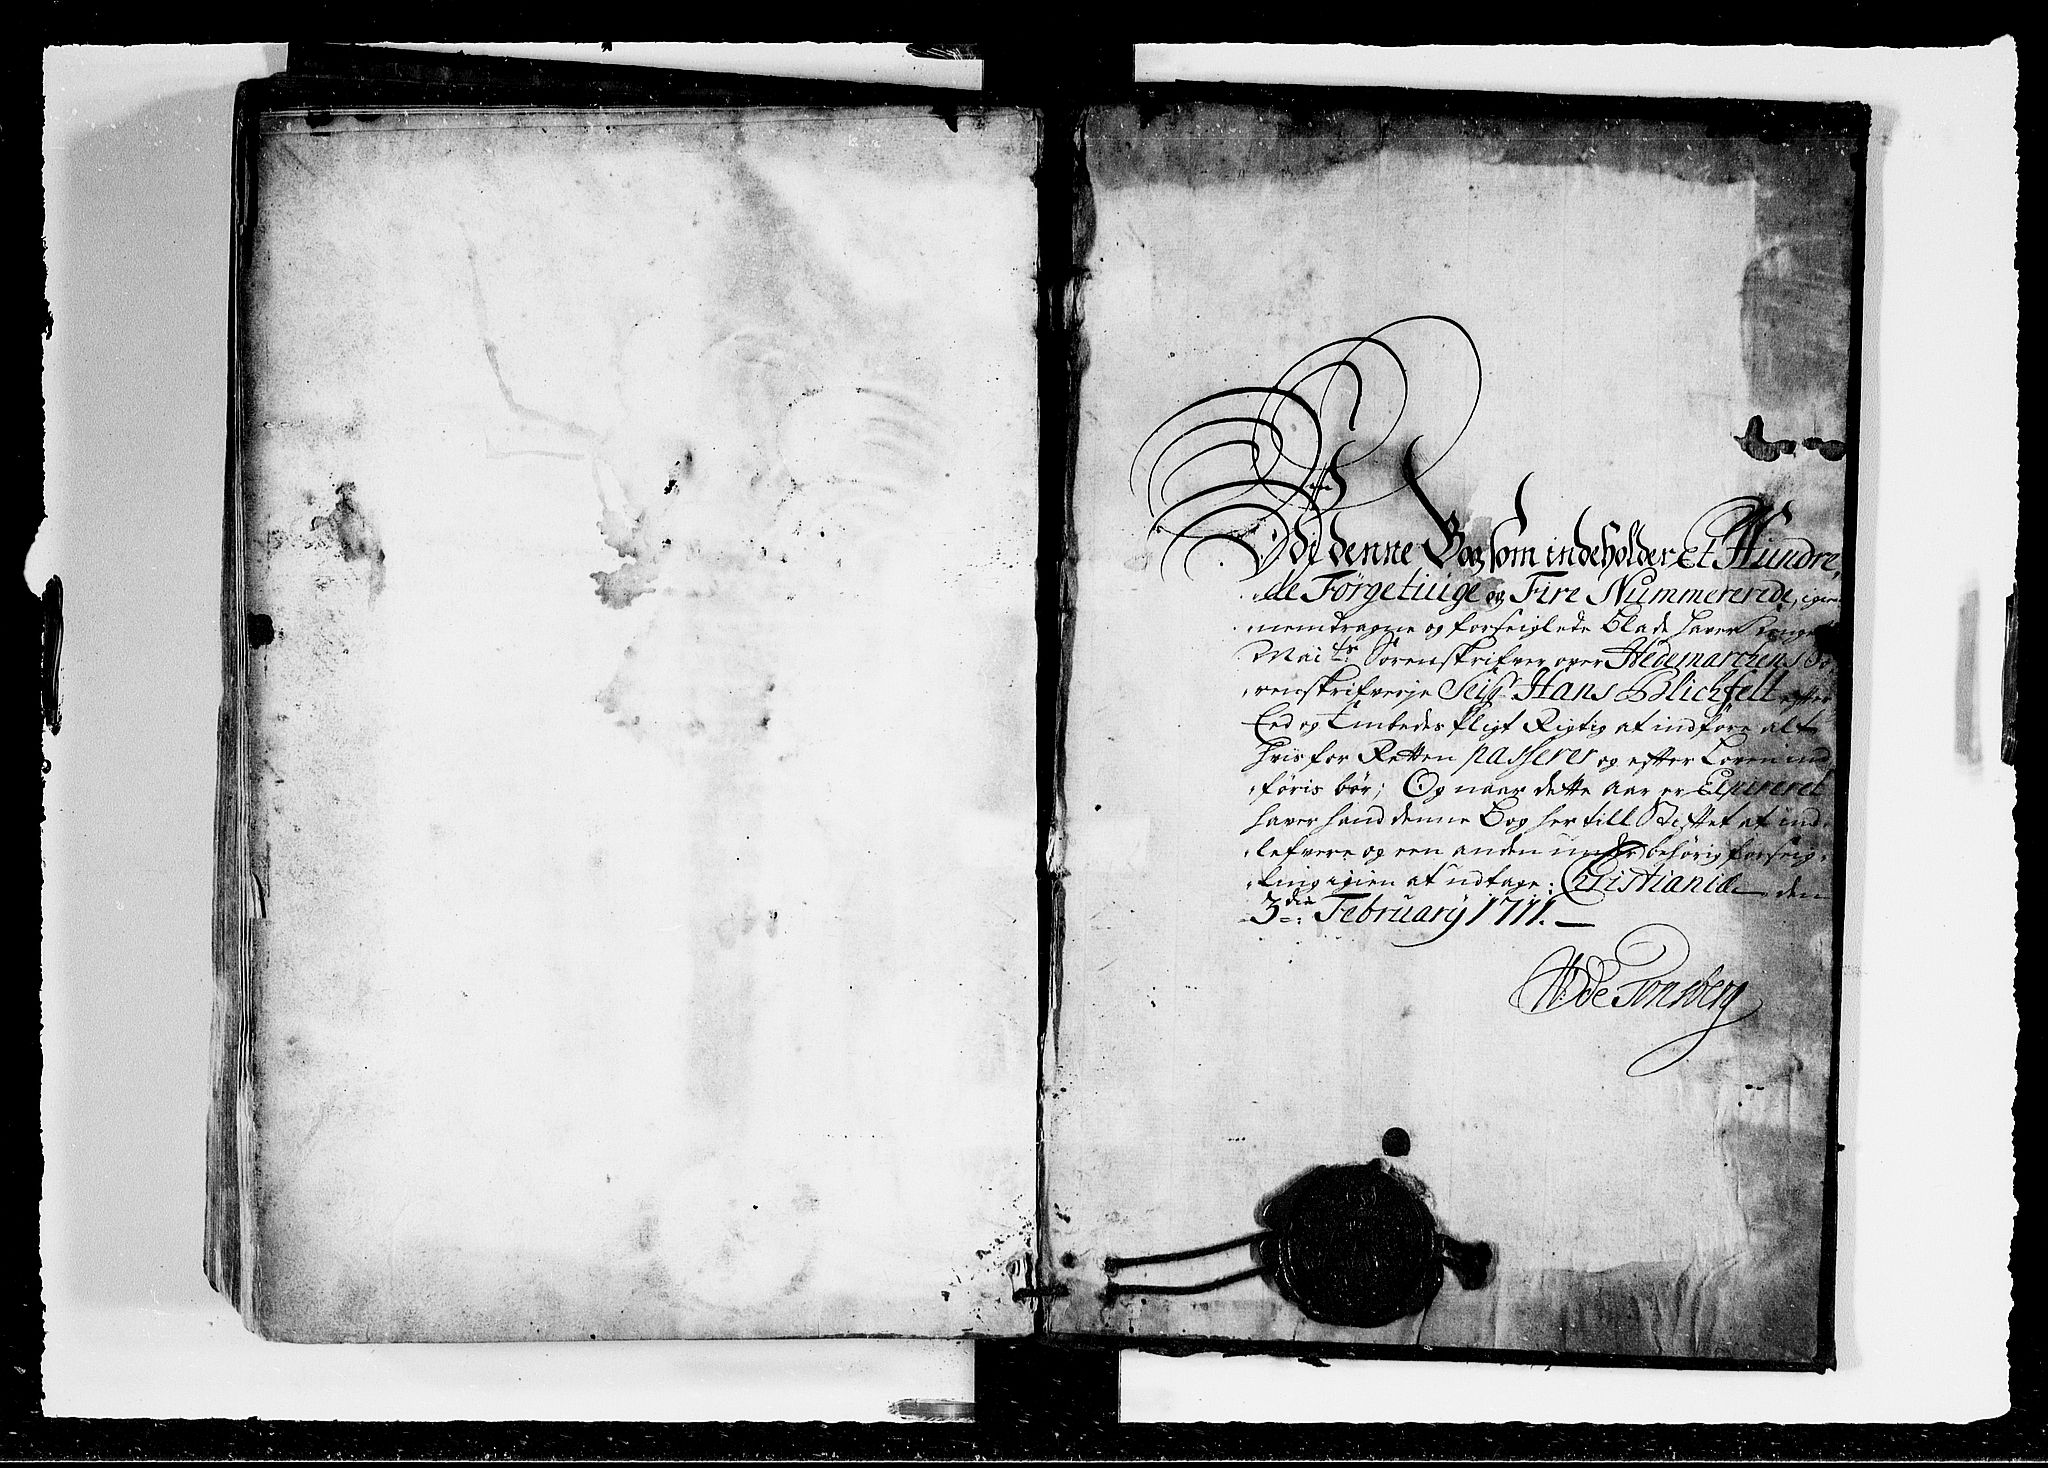 Udi denne Bog som indeholder Et Hundre,
de Førgetiuge og Fire Nummererede, igien
nemdragne og forseiglede blade haver Konge
Mai:ts Sorenskrifver over Hedemarchens So
renskrifverje Seig:r Hans Blichfelt efter
Eed og Embeds Pligt Rigtig at indføre alt
hvis for Retten passerer og efter Loven ind
føris bør; Og naar dette Aar er Expireret
haver hand denne Bog her till Stiftet at ind
lefvere og een anden under behørig forseig
ling igien at udtage: Christianiæ den
3die February 1711.
W de Tonsberg